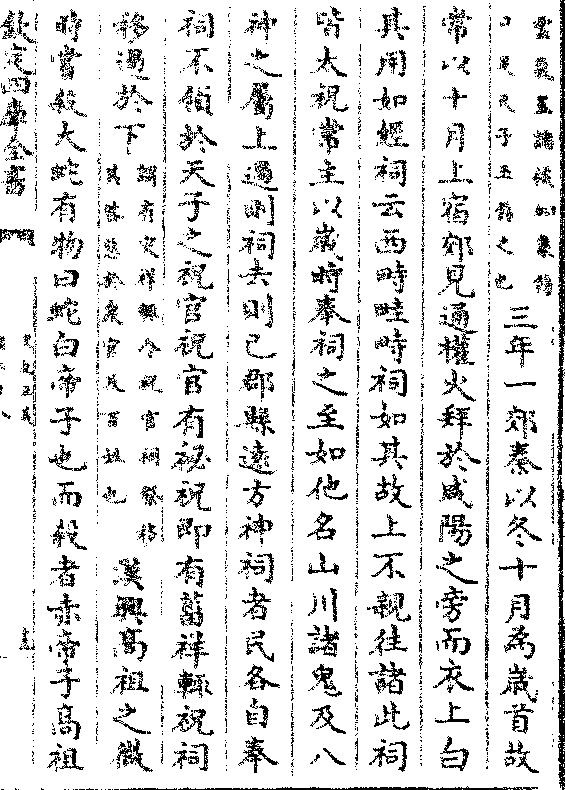 三年一郊秦以冬十月為歲首故
常以十月上宿郊見通權火拜於咸陽之旁而衣上白
其用如經祠云西畤畦畤祠如其故上不親往諸此祠
皆太祝常主以歲時奉祠之至如他名山川諸鬼及八
神之屬上過則祠去則已郡縣遠方神祠者民各自奉
祠不領於天子之祝官祝官有祕祝即有菑祥輒祝祠
移過於下
謂有災祥輒令祝官祠祭移
其咎惡於衆官及百姓也
漢興髙祖之微
時嘗殺大蛇有物曰蛇白帝子也而殺者赤帝子髙祖
欽定四庫全書